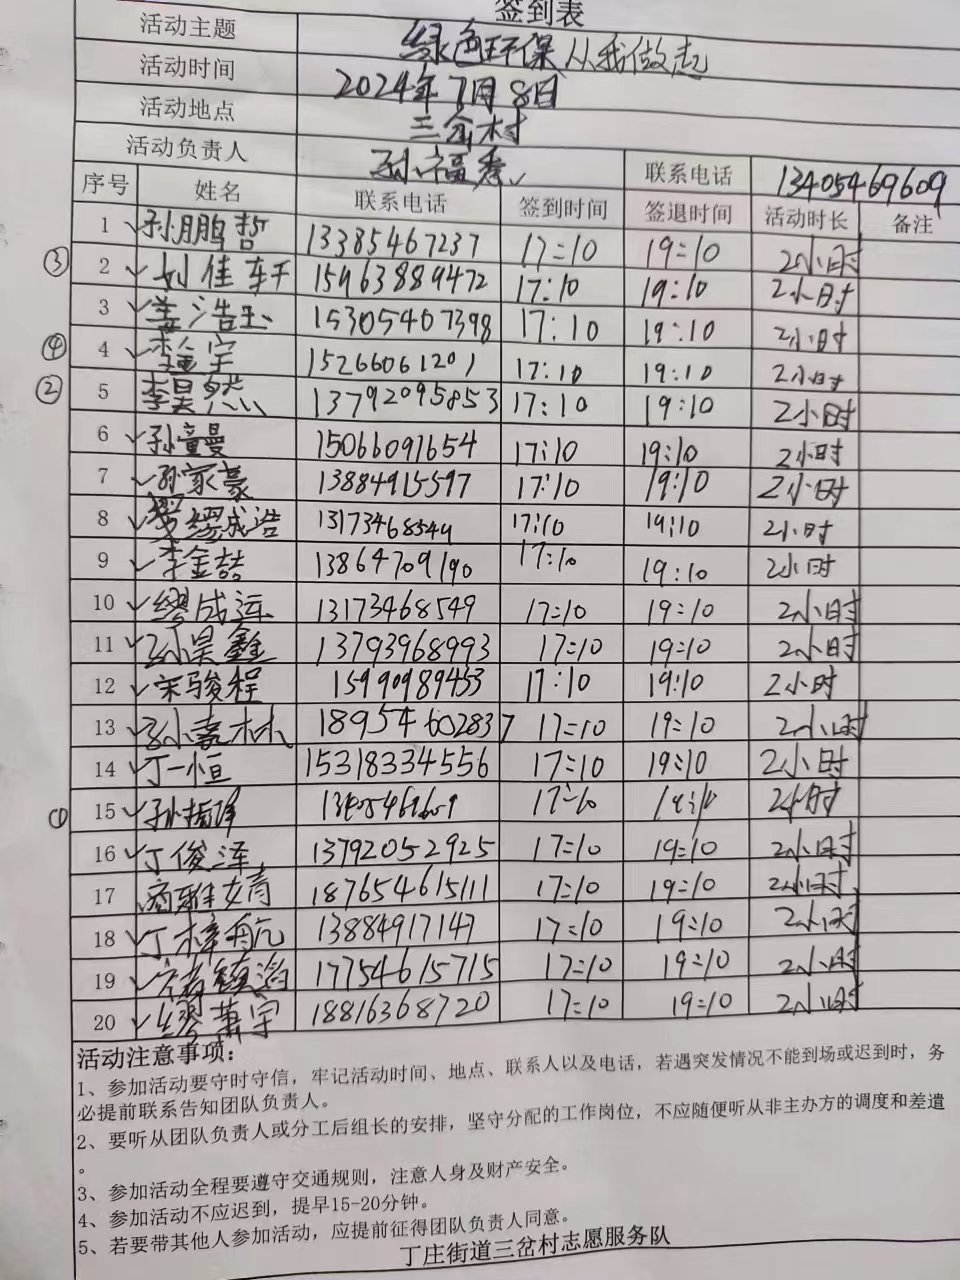 签到表
活动主题 绿色环保从我做起
活动时间 2024年7月8日
活动地点 三岔村
活动负责人 孙福香 联系电话 13405469609
序号 姓名 联系电话 签到时间 签退时间 活动时长 备注
1 孙鹏哲 13385467237 17:10 19:10 2小时
③ 2 刘佳轩 15963889472 17:10 19:10 2小时
3 姜浩玉 15305407398 17:10 19:10 2小时
④ 4 李金宇 15266061201 17:10 19:10 2小时
② 5 李昊然 13792095853 17:10 19:10 2小时
6 孙童曼 15066091654 17:10 19:10 2小时
7 孙家豪 13884915597 17:10 19:10 2小时
8 缪成浩 13173468549 17:10 19:10 2小时
9 李金喆 13864709190 17:10 19:10 2小时
10 缪成运 13173468549 17:10 19:10 2小时
11 孙昊鑫 13793968993 17:10 19:10 2小时
12 宋骏程 15990989453 17:10 19:10 2小时
13 孙嘉林 18954602837 17:10 19:10 2小时
14 丁一恒 15318334556 17:10 19:10 2小时
① 15 孙 13405469609 17:10 19:10 2小时
16 丁俊泽 13792052925 17:10 19:10 2小时
17 商雅婧 18765461511 17:10 19:10 2小时
18 丁梓航 13884917147 17:10 19:10 2小时
19 17754615715 17:10 19:10 2小时
20 缪萧宇 18816368720 17:10 19:10 2小时
活动注意事项：
1、参加活动要守时守信，牢记活动时间、地点、联系人以及电话，若遇突发情况不能到场或迟到时，务
必提前联系告知团队负责人。
2、要听从团队负责人或分工后组长的安排，坚守分配的工作岗位，不应随便听从非主办方的调度和差遣
。
3、参加活动全程要遵守交通规则，注意人身及财产安全。
4、参加活动不应迟到，提早15-20分钟。
5、若要带其他人参加活动，应提前征得团队负责人同意。
丁庄街道三岔村志愿服务队